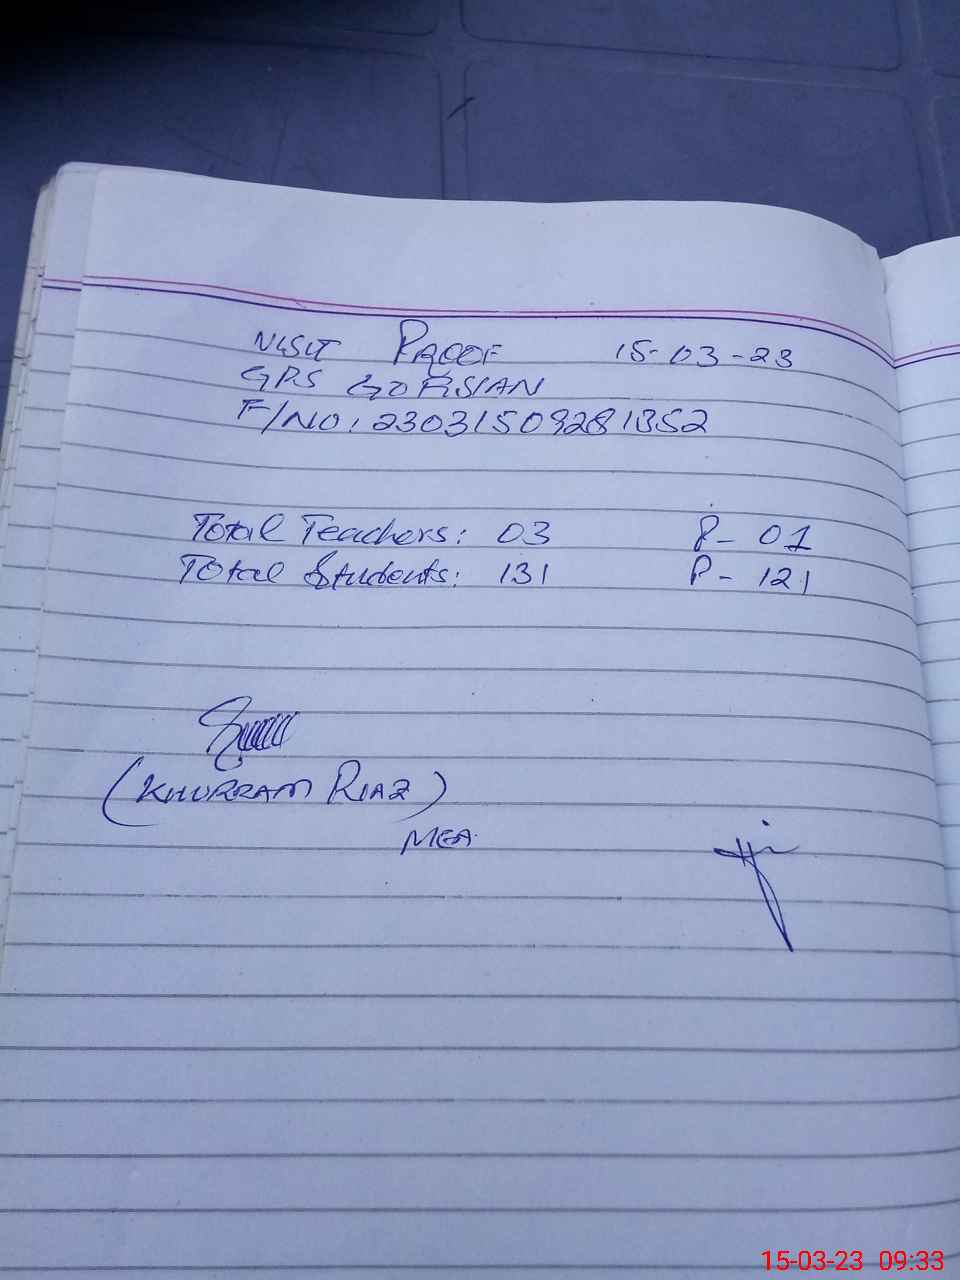 VISIT PROOF 15-03-23
GPS GORSIAN
F/NO: 230315092281352
Total Teachers: 03 P- 01
Total Students: 131 P- 121
(KHURRAM RIAZ)
MEA
15-03-23 09:33